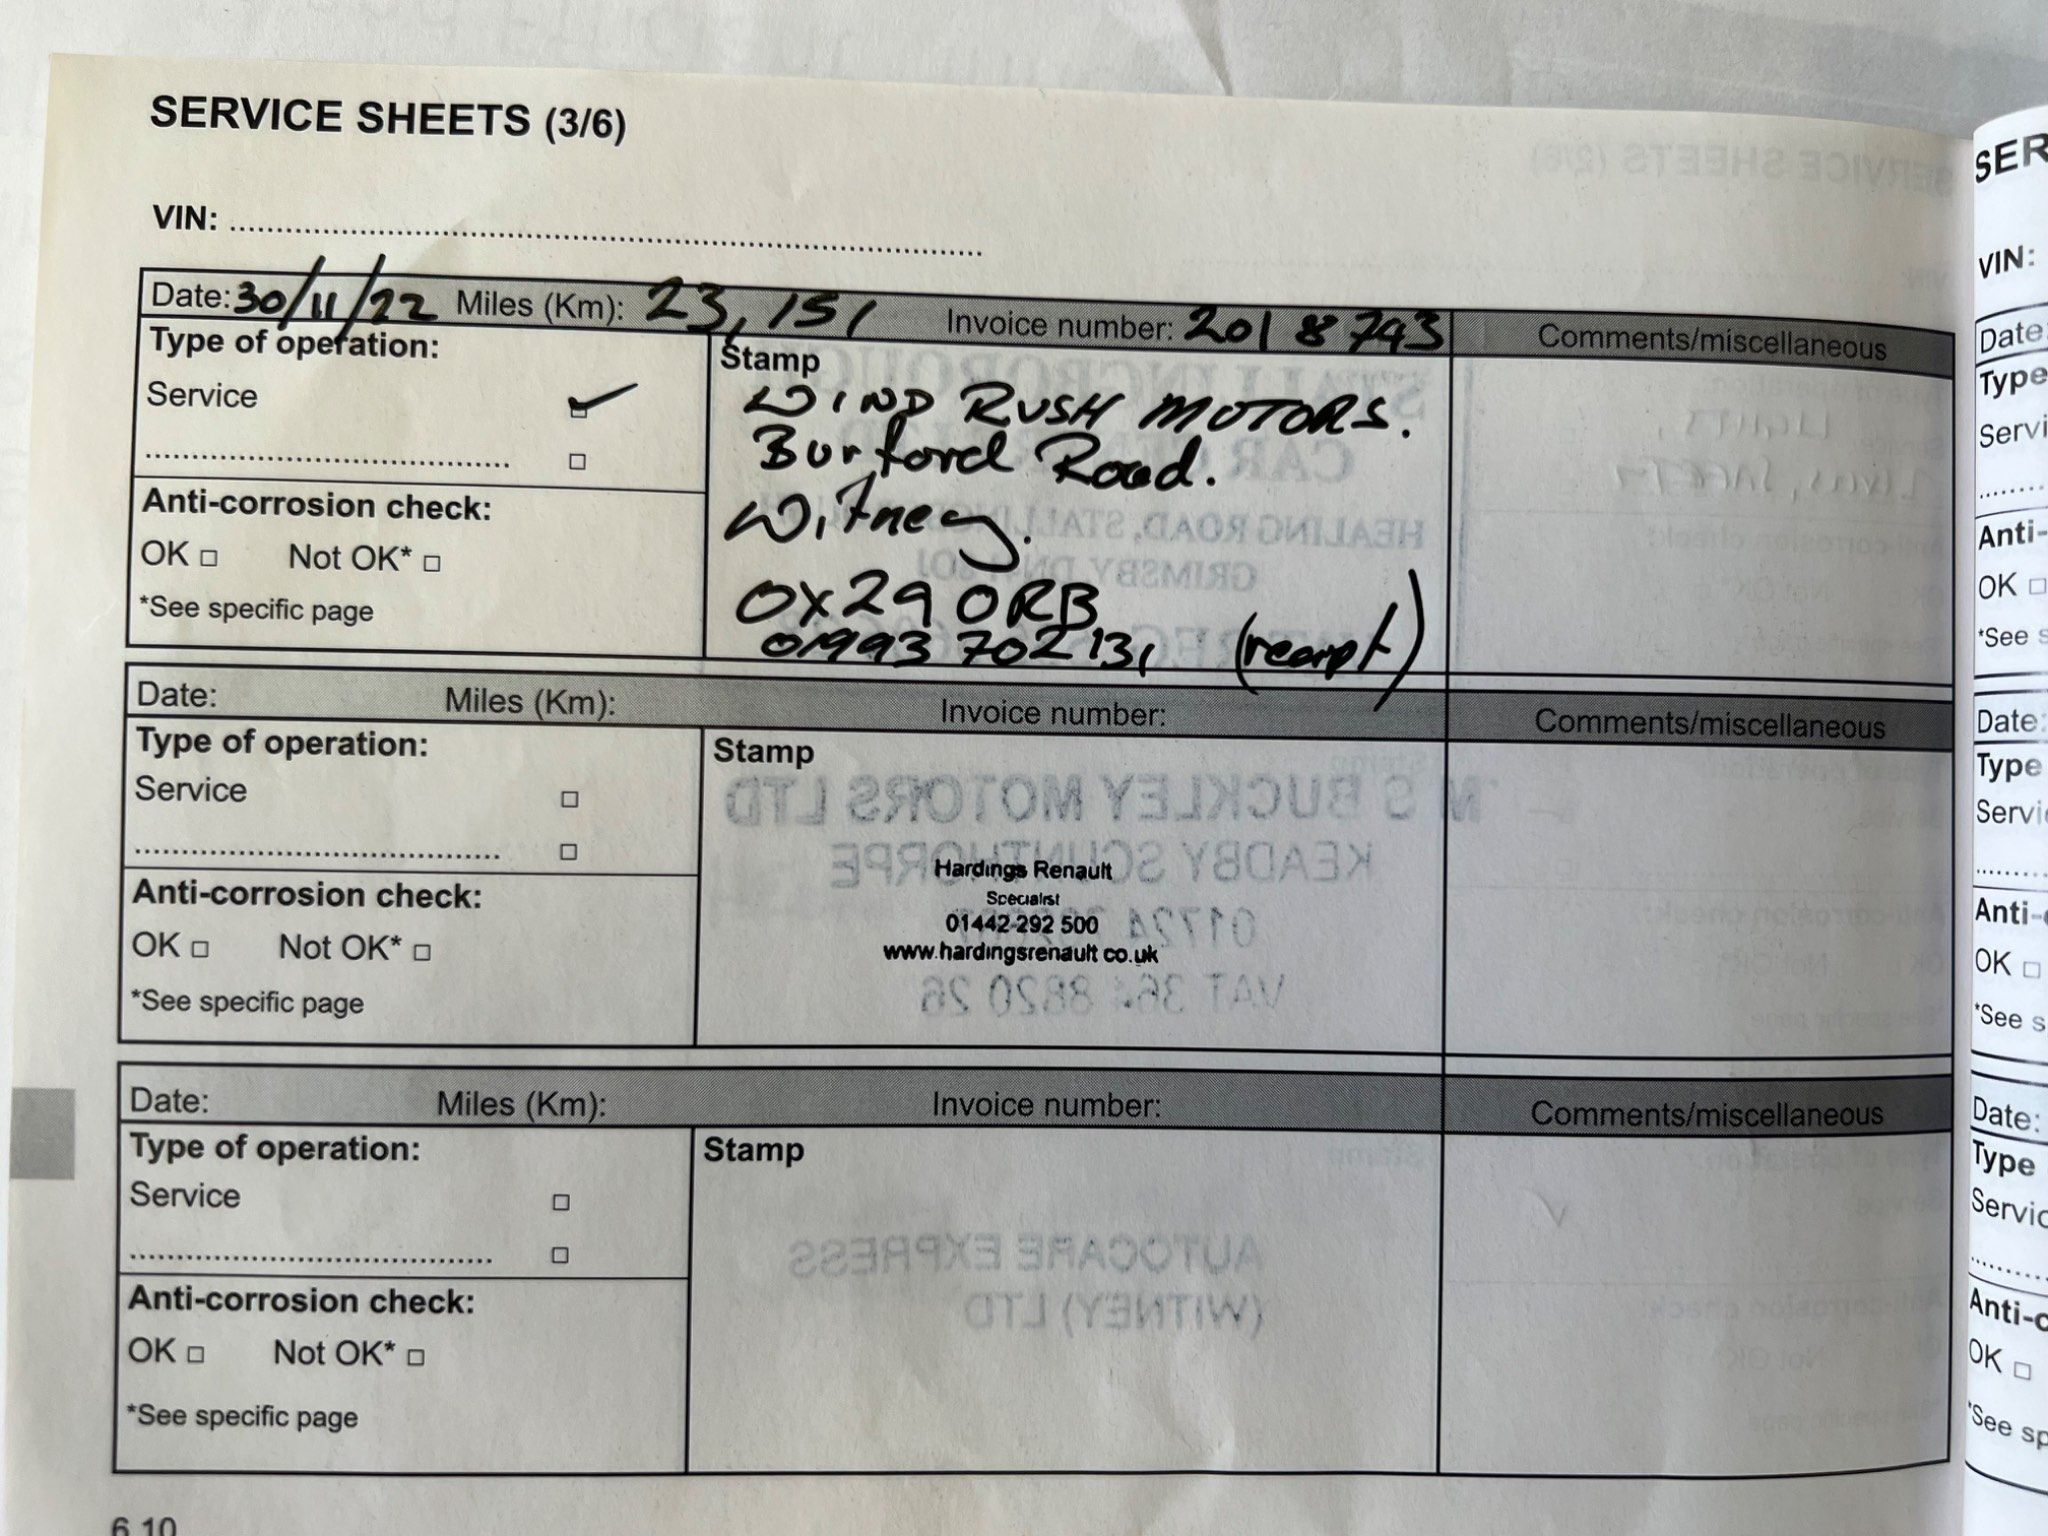 SERVICE SHEETS (3/6)
VIN:
Date: 30/11/22 Miles (Km): 23,151 Invoice number: 2018743 Comments/miscellaneous
Type of operation:
Service
Stamp
WIND RUSH MOTORS.
Burford Road.
Witney.
OX29 0RB
01993 702131 (receipt)
Anti-corrosion check:
OK Not OK*
*See specific page
Date: Miles (Km): Invoice number: Comments/miscellaneous
Type of operation:
Service
Stamp
Hardings Renault
Specialist
01442 292 500
www.hardingsrenault.co.uk
Anti-corrosion check:
OK Not OK*
*See specific page
Date: Miles (Km): Invoice number: Comments/miscellaneous
Type of operation:
Service
Stamp
Anti-corrosion check:
OK Not OK*
*See specific page
6.10
SER
VIN:
Date:
Type
Servi
Anti-
OK
*See s
Date:
Type
Servi
Anti-
OK
*See s
Date:
Type
Servic
Anti-c
OK
*See sp